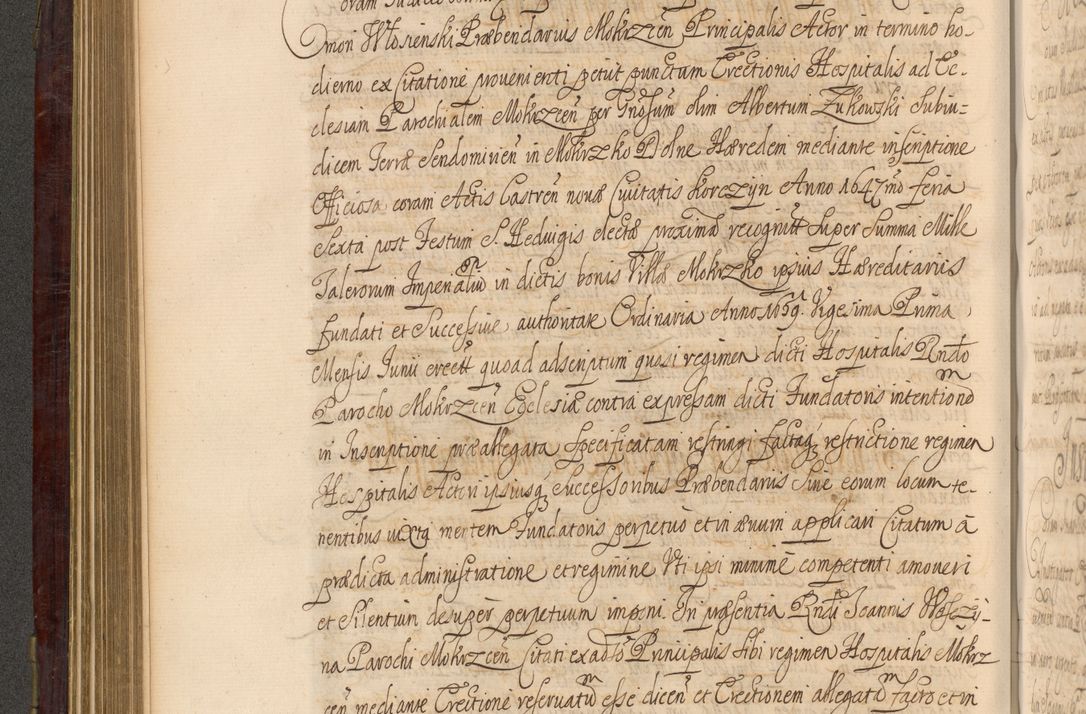 mori Włosienski Præbendarius Mokrzcen̄ Principalis Actor in termino ho-
dierno ex Citatione provenienti petiit punctum Erectionis Hospitalis ad Ec-
clesiam Parochialem Mokrzcen̄ per Gnōsum olim Albertum Żukowski Subiu-
dicem Terræ Sendomirien̄ in Mokrzko Dolne Hæredem mediante inscriptione
Officiosa coram Actis Castren̄ novæ Civitatis Korczyn Anno 1647mō feria
Sexta post Festum S. Hedvigis electæ proxima recognitt Super Summa Mille
Talerorum Imperialiū in dictis bonis Villæ Mokrzko ipsius Hæreditariis
fundati et Successive authoritate Ordinaria Anno 1659. Vigesima Prima
Mensis Junii erectt quoad adscriptum quasi regimen dicti Hospitalis Rndō
Parocho Mokrzcen̄ Ecclesiæ contra expressam dicti Fundatoris intentionem
in Inscriptione præallegata Specificatam restringi factaq́ restrictione regimen
Hospitalis Actori ipsiusq́ Successoribus Præbendariis Sive eorum locum te-
nentibus iuxta mentem Fundatoris perpetuo et in ævum applicari Citatum à
prædicta administratione et regimine Uti ipsi minimè competenti amoveri
et Silentium desuper perpetuum imponi. In præsentia Rndi Joannis Woszczy-
na Parochi Mokrzcen̄ Citati ex adōo Principalis Sibi regimen Hospitalis Mokrz
cen̄ mediante Erectione reservatum esse dicen̄ et Erectionem allegatam facto et in